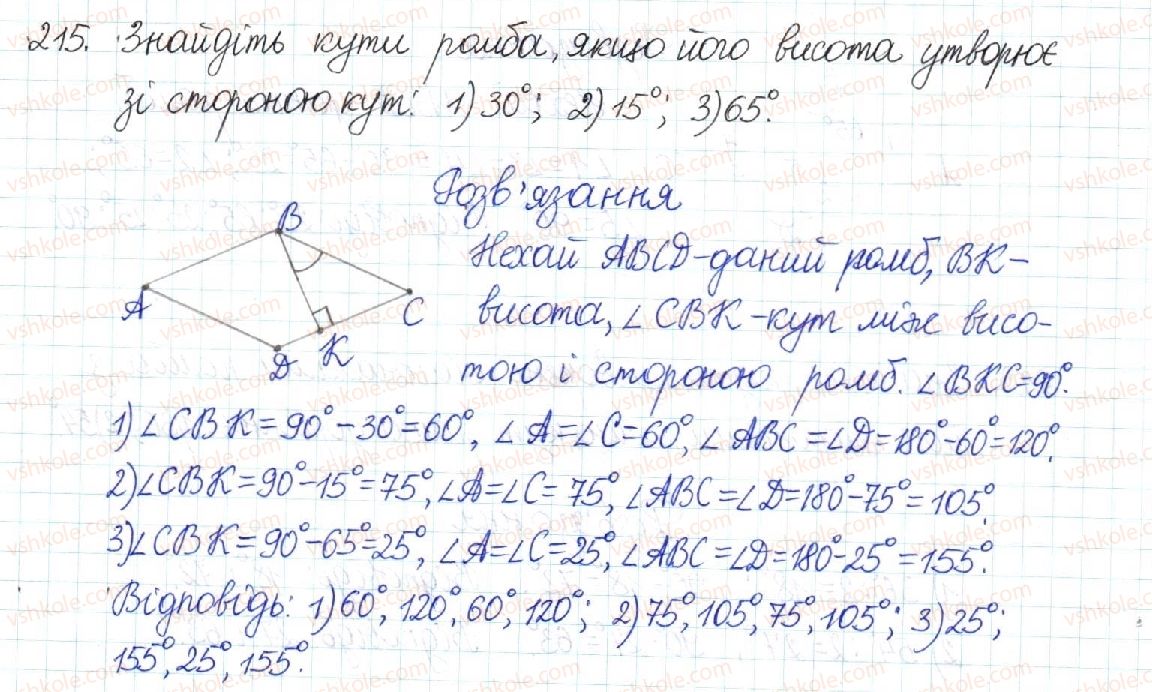 215. Знайдіть кути ромба, якщо його висота утворює
зі стороною кут: 1) 30°; 2) 15°; 3) 65°.
Розв'язання
B
A
C
D
K
Нехай ABCD - даний ромб, BK -
висота, ∠CBK - кут між висо-
тою і стороною ромб. ∠BKC = 90°.
1) ∠CBK = 90° - 30° = 60°, ∠A = ∠C = 60°, ∠ABC = ∠D = 180° - 60° = 120°.
2) ∠CBK = 90° - 15° = 75°, ∠A = ∠C = 75°, ∠ABC = ∠D = 180° - 75° = 105°.
3) ∠CBK = 90° - 65° = 25°, ∠A = ∠C = 25°, ∠ABC = ∠D = 180° - 25° = 155°.
Відповідь: 1) 60°, 120°, 60°, 120°; 2) 75°, 105°, 75°, 105°; 3) 25°;
155°, 25°, 155°.
vshkole.com